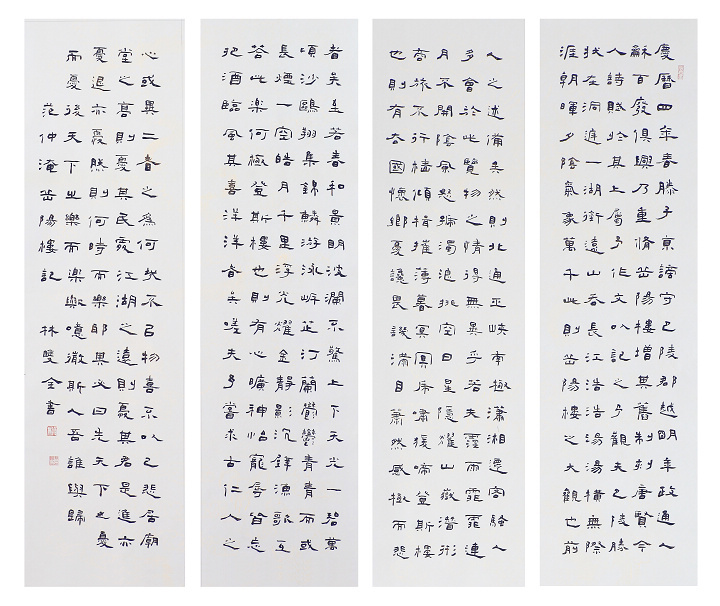 慶曆四年春滕子京謫守巴陵郡越明年政通人
龢百廢俱興乃重脩岳陽樓增其舊制刻唐賢今
人詩賦於其上屬予作文以記之予觀夫巴陵勝
狀在洞庭一湖銜遠山吞長江浩浩湯湯橫無際
涯朝暉夕陰氣象萬千此則岳陽樓之大觀也前
人之述備矣然則北通巫峽南極瀟湘遷客騷人
多會於此覽物之情得無異乎若夫霪雨霏霏連
月不開陰風怒號濁浪排空日星隱耀山嶽潛形
商旅不行檣傾楫摧薄暮冥冥虎嘯猿啼登斯樓
也則有去國懷鄉憂讒畏譏滿目蕭然感極而悲
者矣至若春和景明波瀾不驚上下天光一碧萬
頃沙鷗翔集錦鱗游泳岸芷汀蘭鬱鬱青青而或
長煙一空皓月千里浮光耀金靜影沉璧漁歌互
答此樂何極登斯樓也則有心曠神怡寵辱皆忘
把酒臨風其喜洋洋者矣嗟夫予嘗求古仁人之
心或異二者之為何哉不以物喜不以己悲居廟
堂之高則憂其民處江湖之遠則憂其君是進亦
憂退亦憂然則何時而樂耶其必曰先天下之憂
而憂後天下之樂而樂歟噫微斯人吾誰與歸
范仲淹岳陽樓記 林雙全書